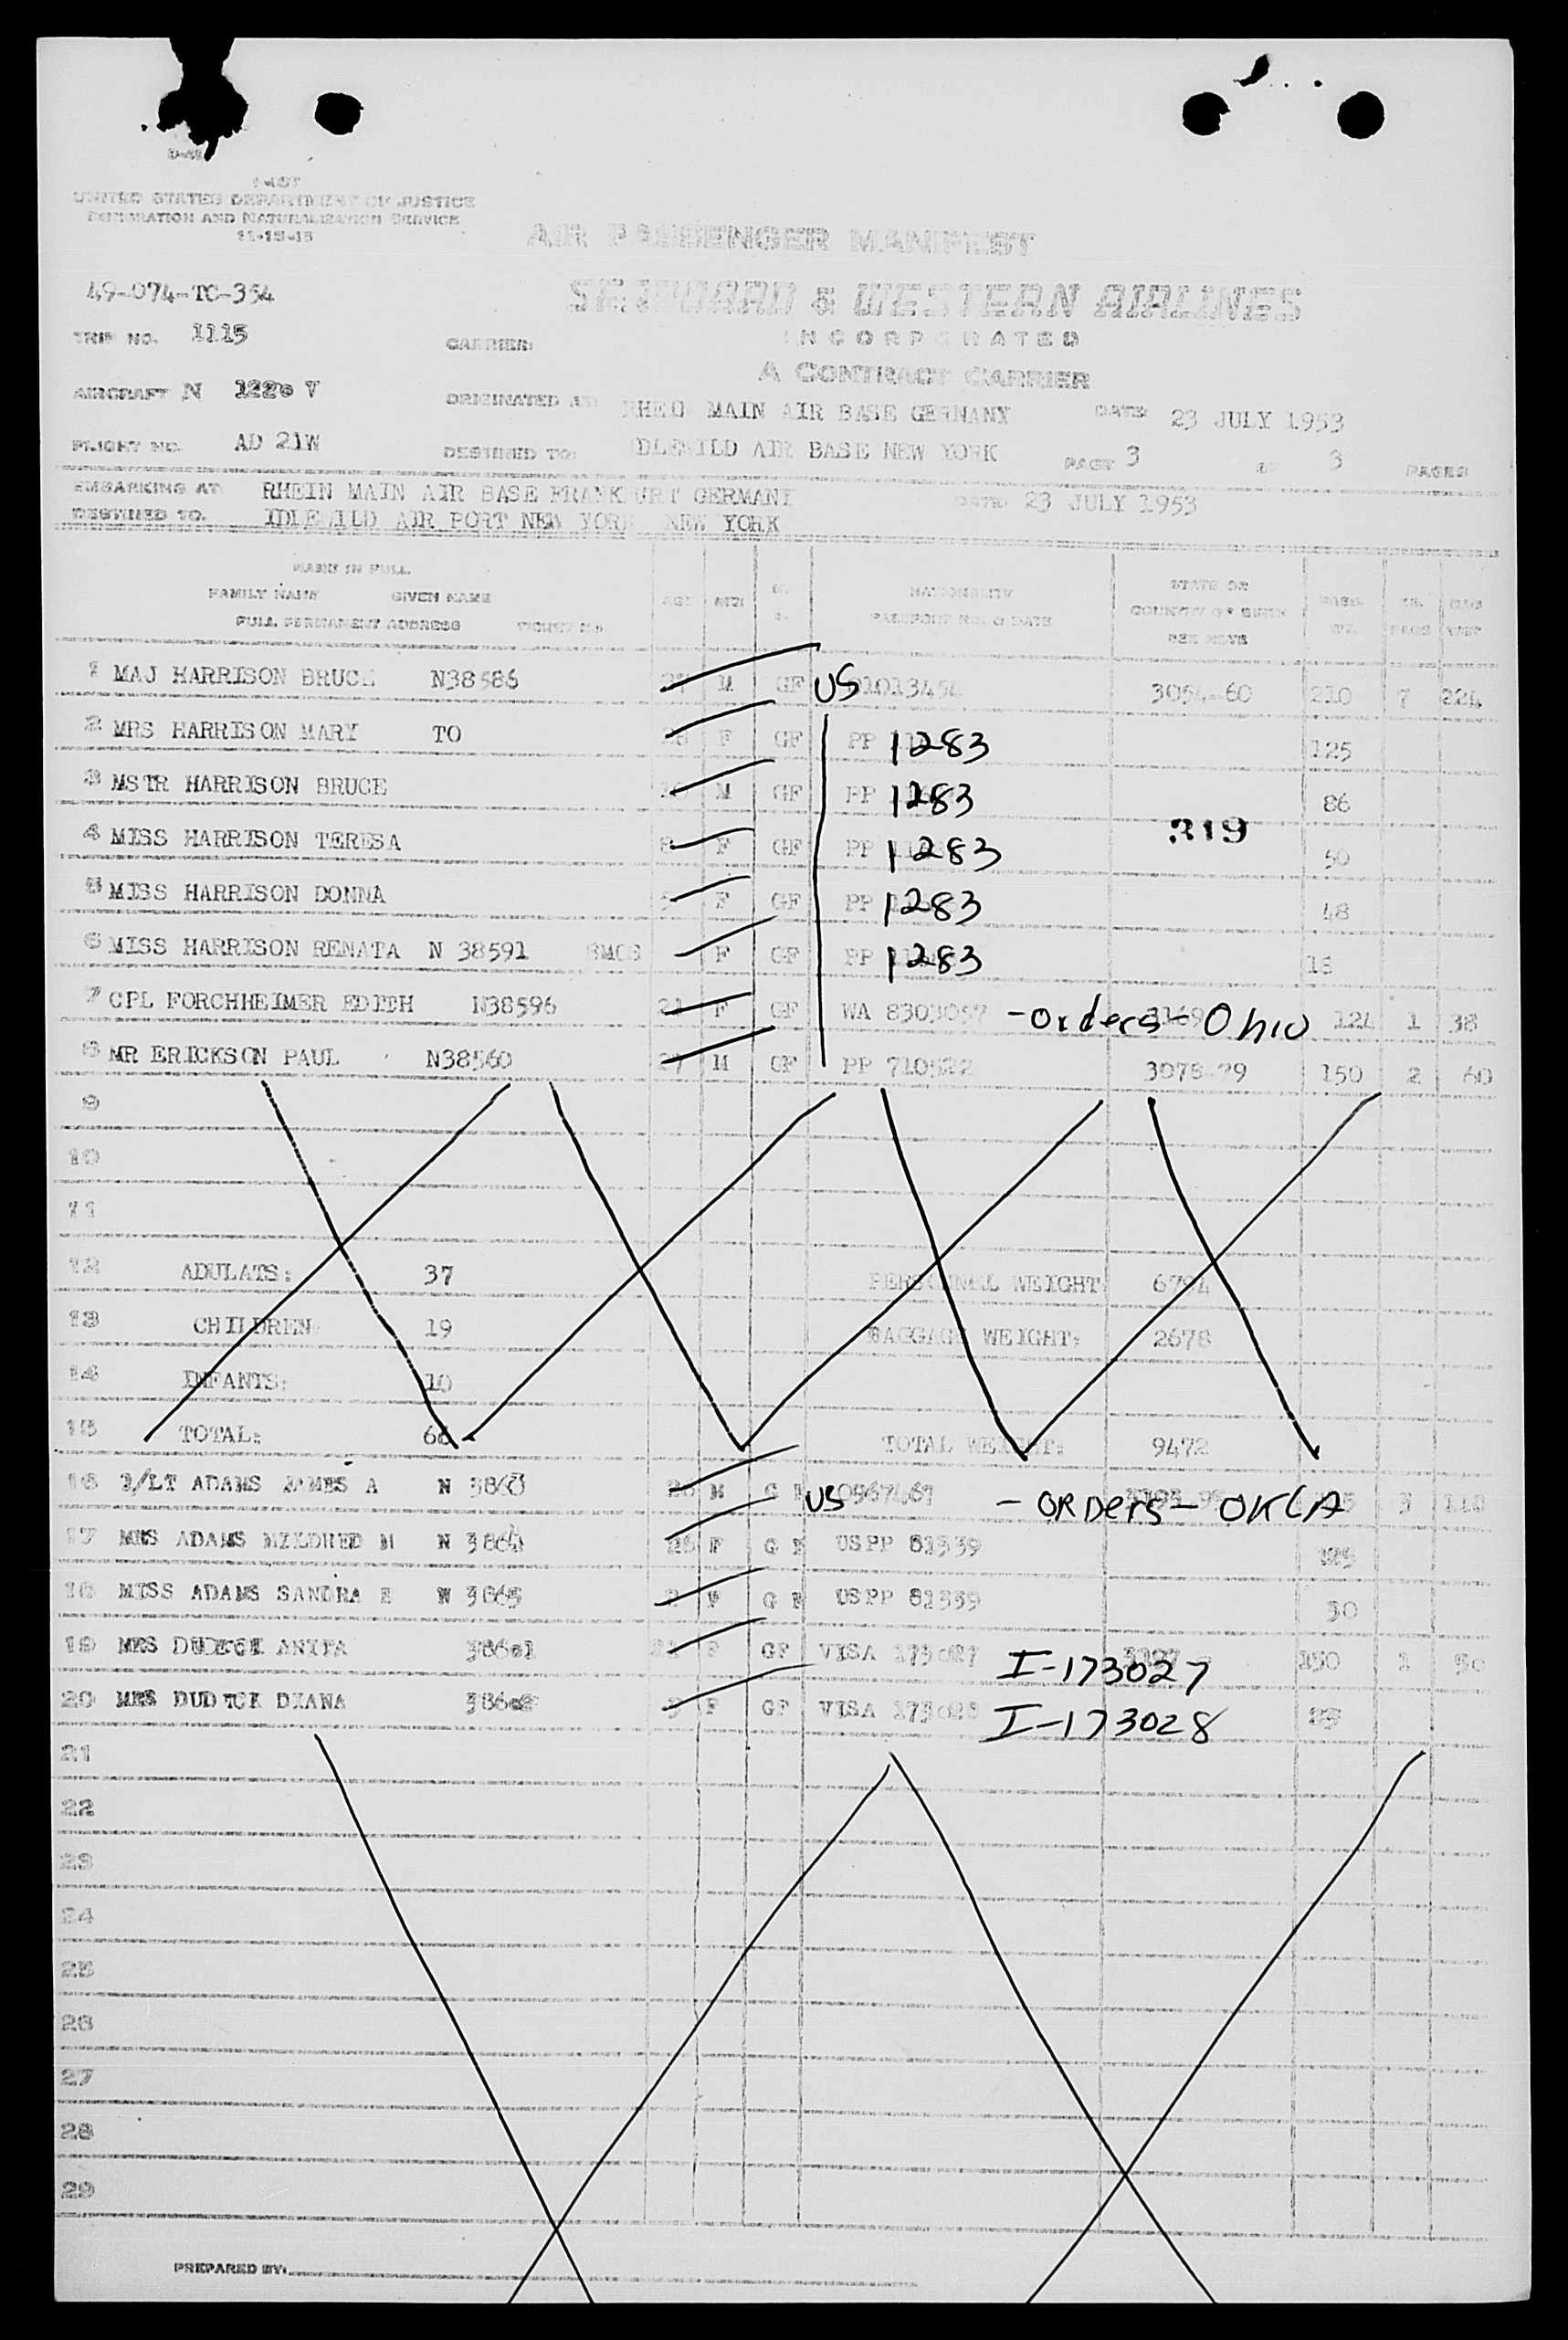 I-457
UNITED STATES DEPARTMENT OF JUSTICE
IMMIGRATION AND NATURALIZATION SERVICE
AIR PASSENGER MANIFEST
49-074-TC-354
SEABOARD & WESTERN AIRLINES
INCORPORATED
A CONTRACT CARRIER
TRIP NO. 1115 CARRIER:
AIRCRAFT N ORIGINATED AT: RHEIN MAIN AIR BASE GERMANY DATE 23 JULY 1953
FLIGHT NO. AD 21W DESTINED TO: IDLEWILD AIR BASE NEW YORK PAGE 3 OF 3 PAGES
EMBARKING AT RHEIN MAIN AIR BASE FRANKFURT GERMANY DATE 23 JULY 1953
DESTINED TO. IDLEWILD AIR PORT NEW YORK NEW YORK
NAME IN FULL
FAMILY NAME GIVEN NAME AGE SEX NATIONALITY STATE OR
FULL PERMANENT ADDRESS TICKET NO. PASSPORT NO. & DATE COUNTRY OF BIRTH
1 MAJ HARRISON BRUCE N38586 M GF US 3054-60 210 7 224
2 MRS HARRISON MARY TO F GF PP 1283 125
3 MSTR HARRISON BRUCE M GF PP 1283 86
4 MISS HARRISON TERESA F GF PP 1283 319 50
5 MISS HARRISON DONNA F GF PP 1283 48
6 MISS HARRISON RENATA N 38591 F GF PP 1283
7 CPL FORCHHEIMER EDITH N38596 F GF WA -Orders- Ohio 124 1 38
8 MR ERICKSON PAUL N38560 M GF PP 710522 3078-79 150 2 60
9
10
11
12 ADULATS: 37 PERSONNAL WEIGHT: 6794
13 CHILDREN 19 BAGGAGE WEIGHT: 2678
14 INFANTS: 10
15 TOTAL: 66 TOTAL WEIGHT: 9472
16 1/LT ADAMS JAMES A N M G F US - ORDers - OKLA 3
17 MRS ADAMS MILDRED M N 3864 F G F USPP 81339 125
18 MISS ADAMS SANDRA E N 3865 F G F USPP 81339 30
19 MRS ANITA F GF VISA 173027 I-173027 1 50
20 MRS DIANA F GF VISA 173028 I-173028 25
21
22
23
24
25
26
27
28
29
PREPARED BY: